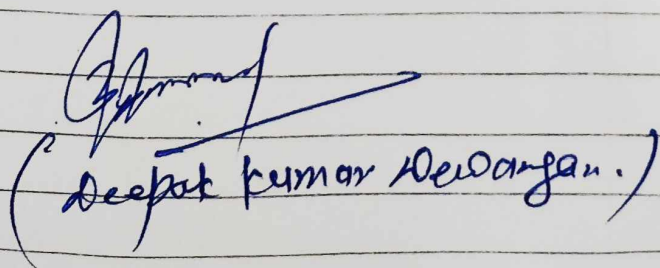 (Deepak kumar Dewangan.)